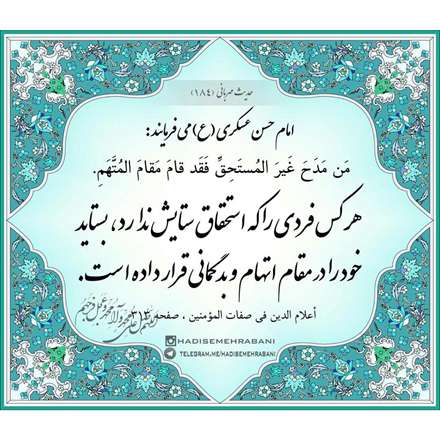 حدیث مهربانی (۱۸۴)
امام حسن عسکری (ع) می فرمایند:
مَن مَدَحَ غَیرَ المُستَحِقِّ فَقَد قامَ مَقامَ المُتَّهَمِ.
هر کس فردی را که استحقاق ستایش ندارد، بستاید
خود را در مقام اتهام و بدگمانی قرار داده است.
أعلام الدین فی صفات المؤمنین ، صفحه ۳۱۳
اللهم صل علی محمد و آل محمد و عجل فرجهم
HADISEMEHRABANI
TELEGRAM.ME/HADISEMEHRABANI